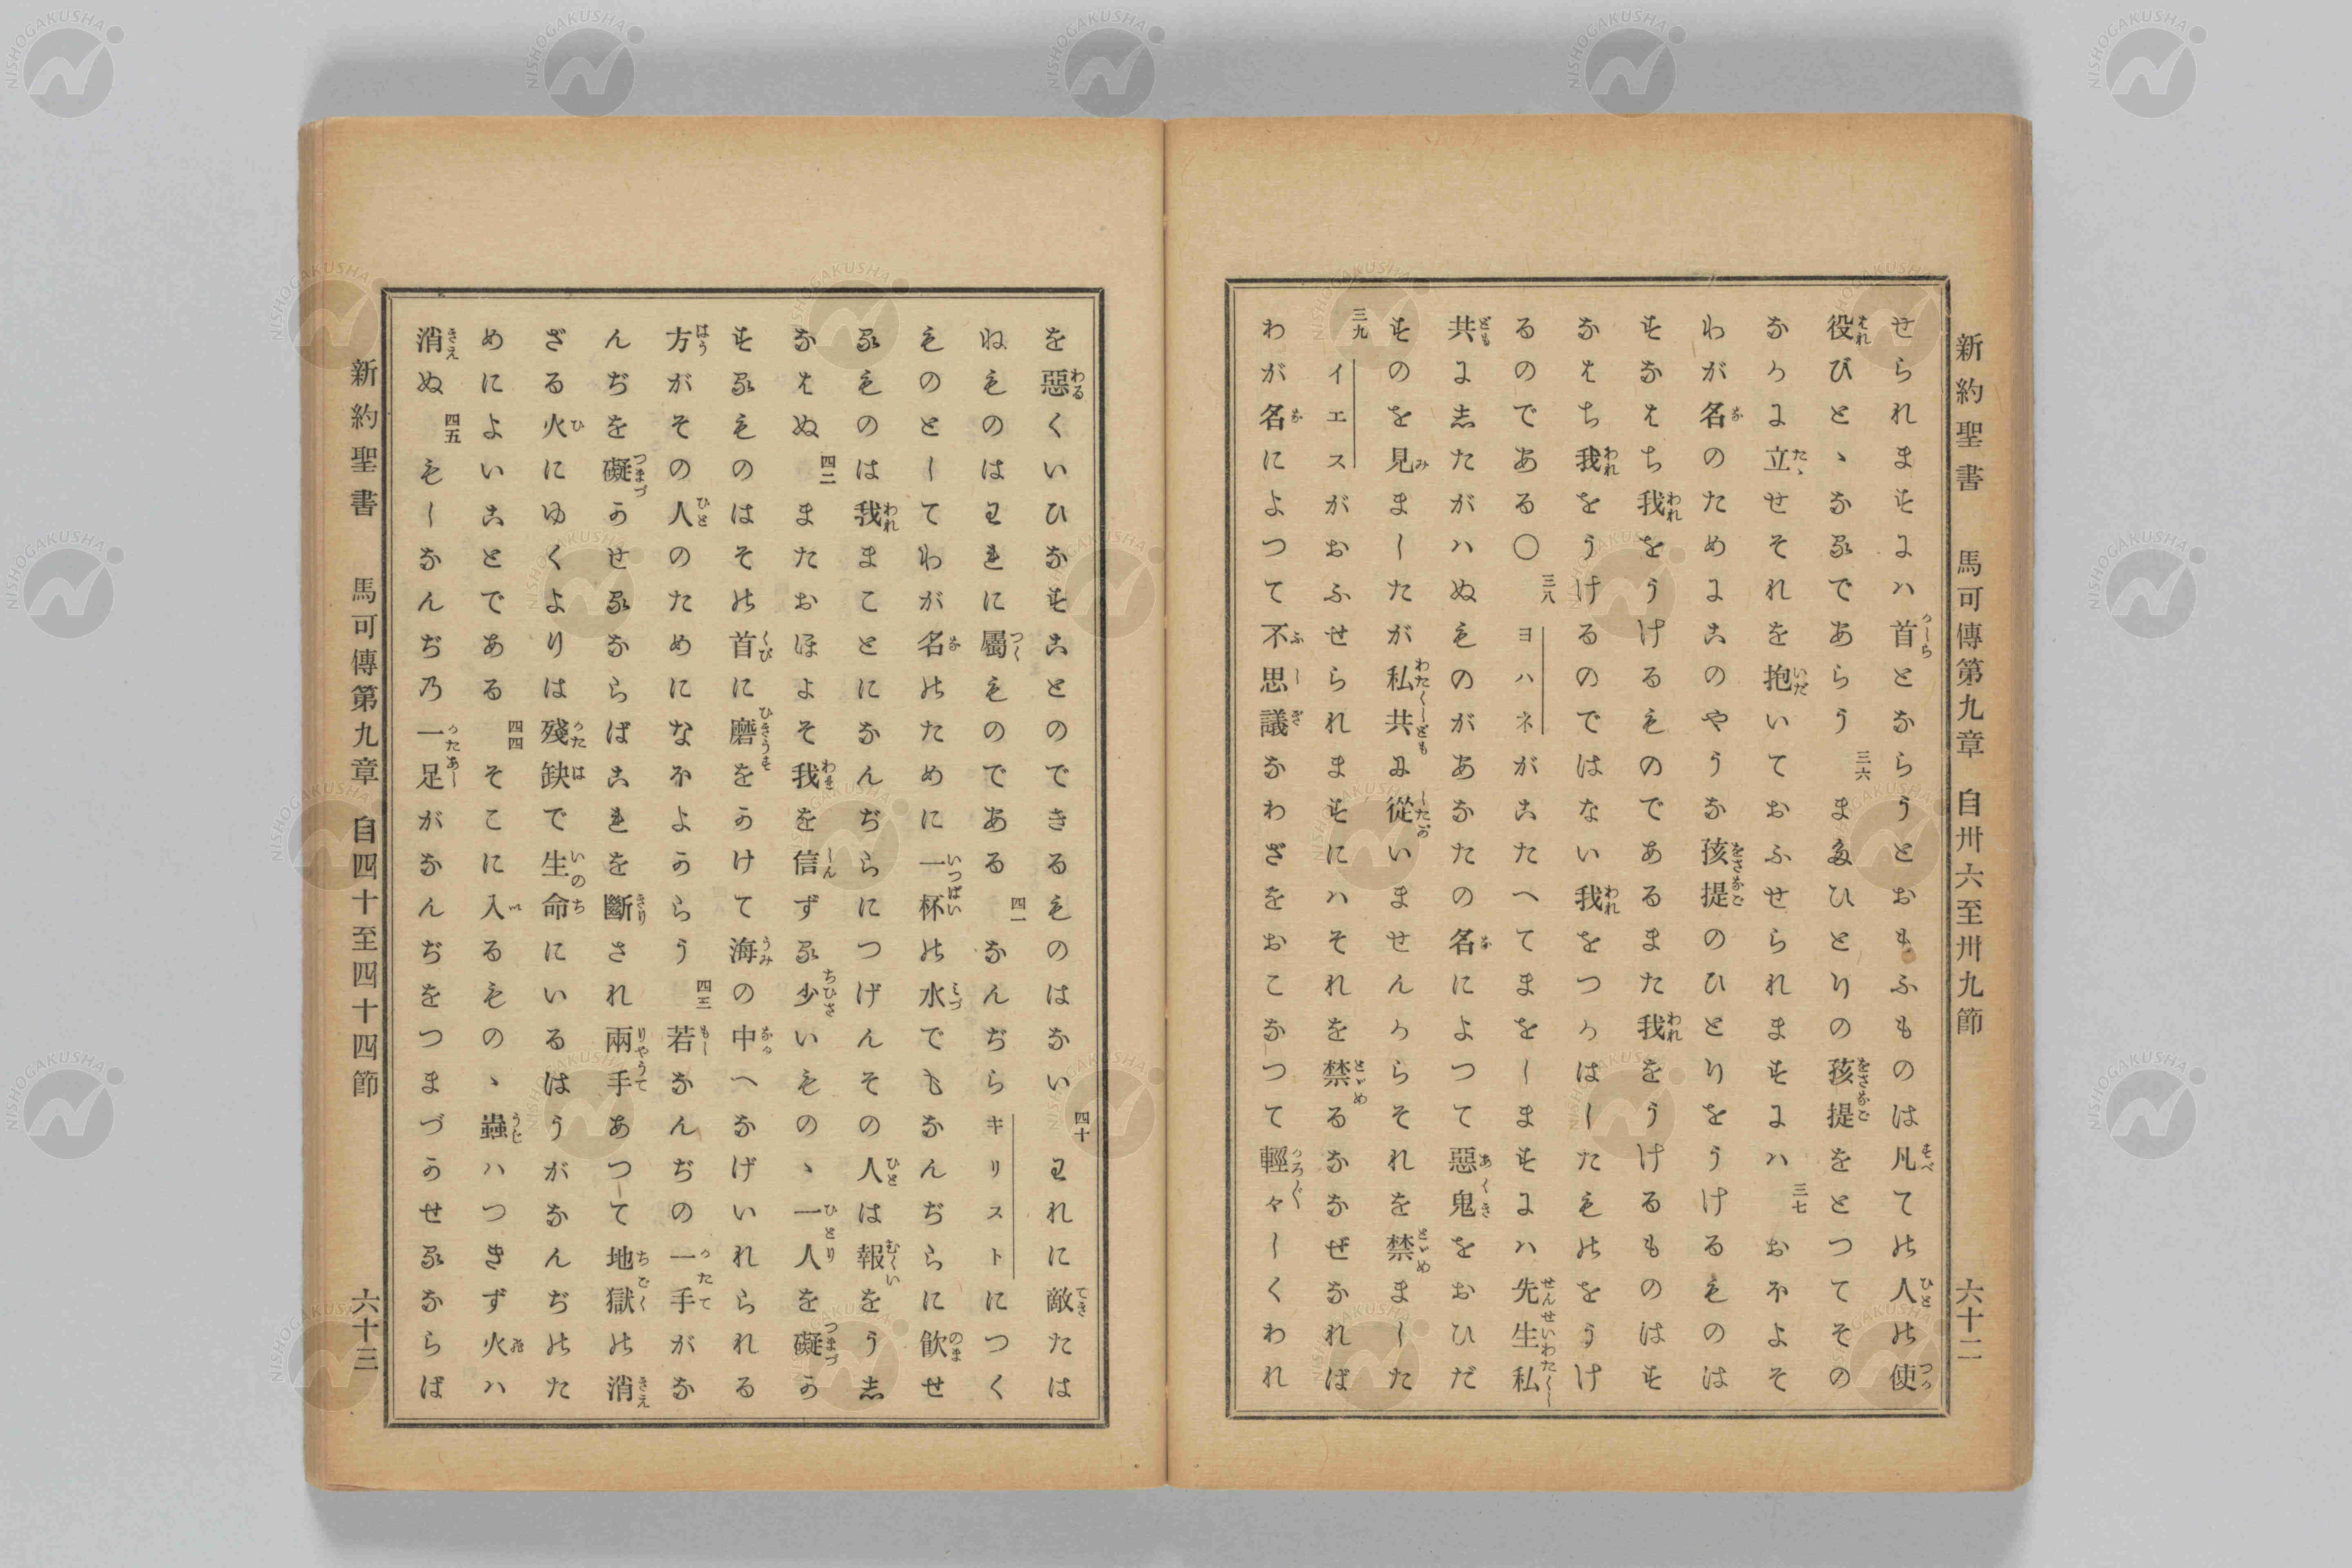 新約聖書 馬可傳第九章 自卅六至卅九節 六十二
せられますにハ首とならうとおもふものは凡ての人の使
役びとゝなるであらう 三六 またひとりの孩提をとつてその
なかに立せそれを抱いておふせられますにハ 三七 おほよそ
わが名のためにこのやうな孩提のひとりをうけるものは
すなはち我をうけるものであるまた我をうけるものはす
なはち我をうけるのではない我をつかはしたものをうけ
るのである〇 三八 ヨハネがこたへてまをしますにハ先生私
共にしたがハぬものがあなたの名によつて惡鬼をおひだ
すのを見ましたが私共に從いませんからそれを禁ました
三九 イエスがおふせられますにハそれを禁るななぜなれば
わが名によつて不思議なわざをおこなつて輕々しくわれ
を惡くいひなすことのできるものはない 四十 われに敵たは
ねものはわれに屬ものである 四一 なんぢらキリストにつく
ものとしてわが名のために一杯の水でもなんぢらに飮せ
るものは我まことになんぢらにつげんその人は報をうし
なはぬ 四二 またおほよそ我を信ずる少いものゝ一人を礙か
するものはその首に磨をかけて海の中へなげいれられる
方がその人のためになほよからう 四三 若なんぢの一手がな
んぢを礙かせるならばこれを斷され兩手あつて地獄の消
ざる火にゆくよりは殘缺で生命にいるはうがなんぢのた
めによいことである 四四 そこに入るものゝ蟲ハつきず火ハ
消ぬ 四五 もしなんぢ乃一足がなんぢをつまづかせるならば
新約聖書 馬可傳第九章 自四十至四十四節 六十三
NISHOGAKUSHA